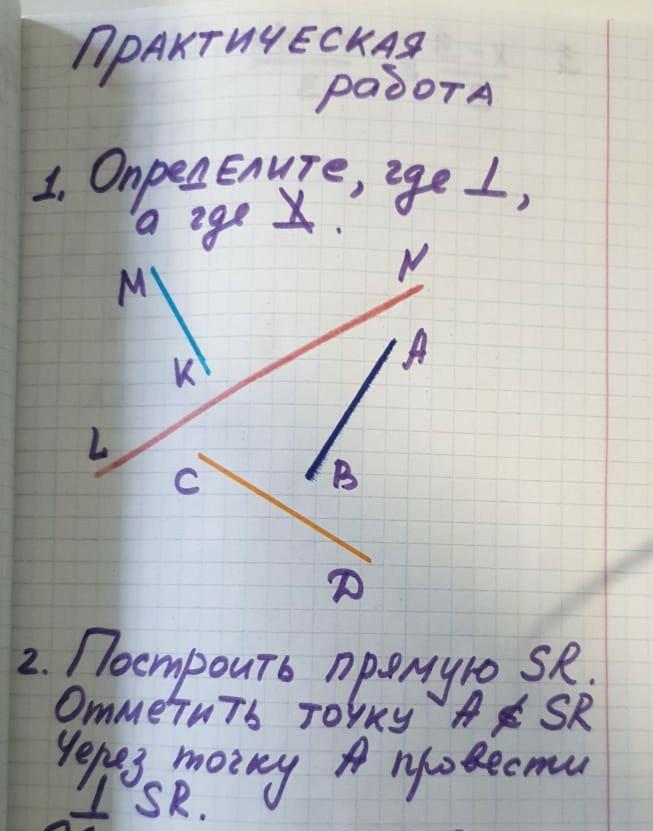 ПРАКТИЧЕСКАЯ
работа
1. Определите, где ⊥,
а где ⊥̸.
M
N
K
A
L
C
B
D
2. Построить прямую SR.
Отметить точку A ∉ SR
Через точку A провести
⊥ SR.